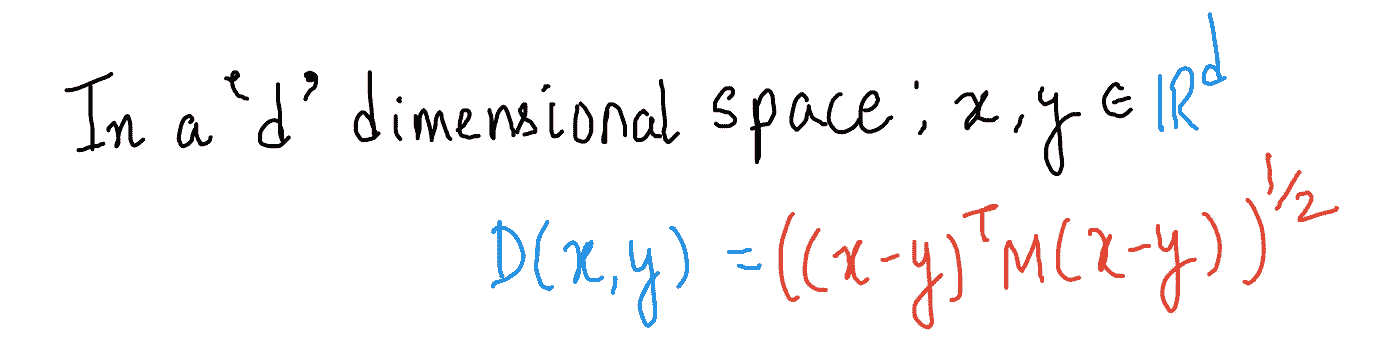 In a 'd' dimensional space; x, y ∈ ℝᵈ
D(x, y) = ((x-y)ᵀ M (x-y))^1/2